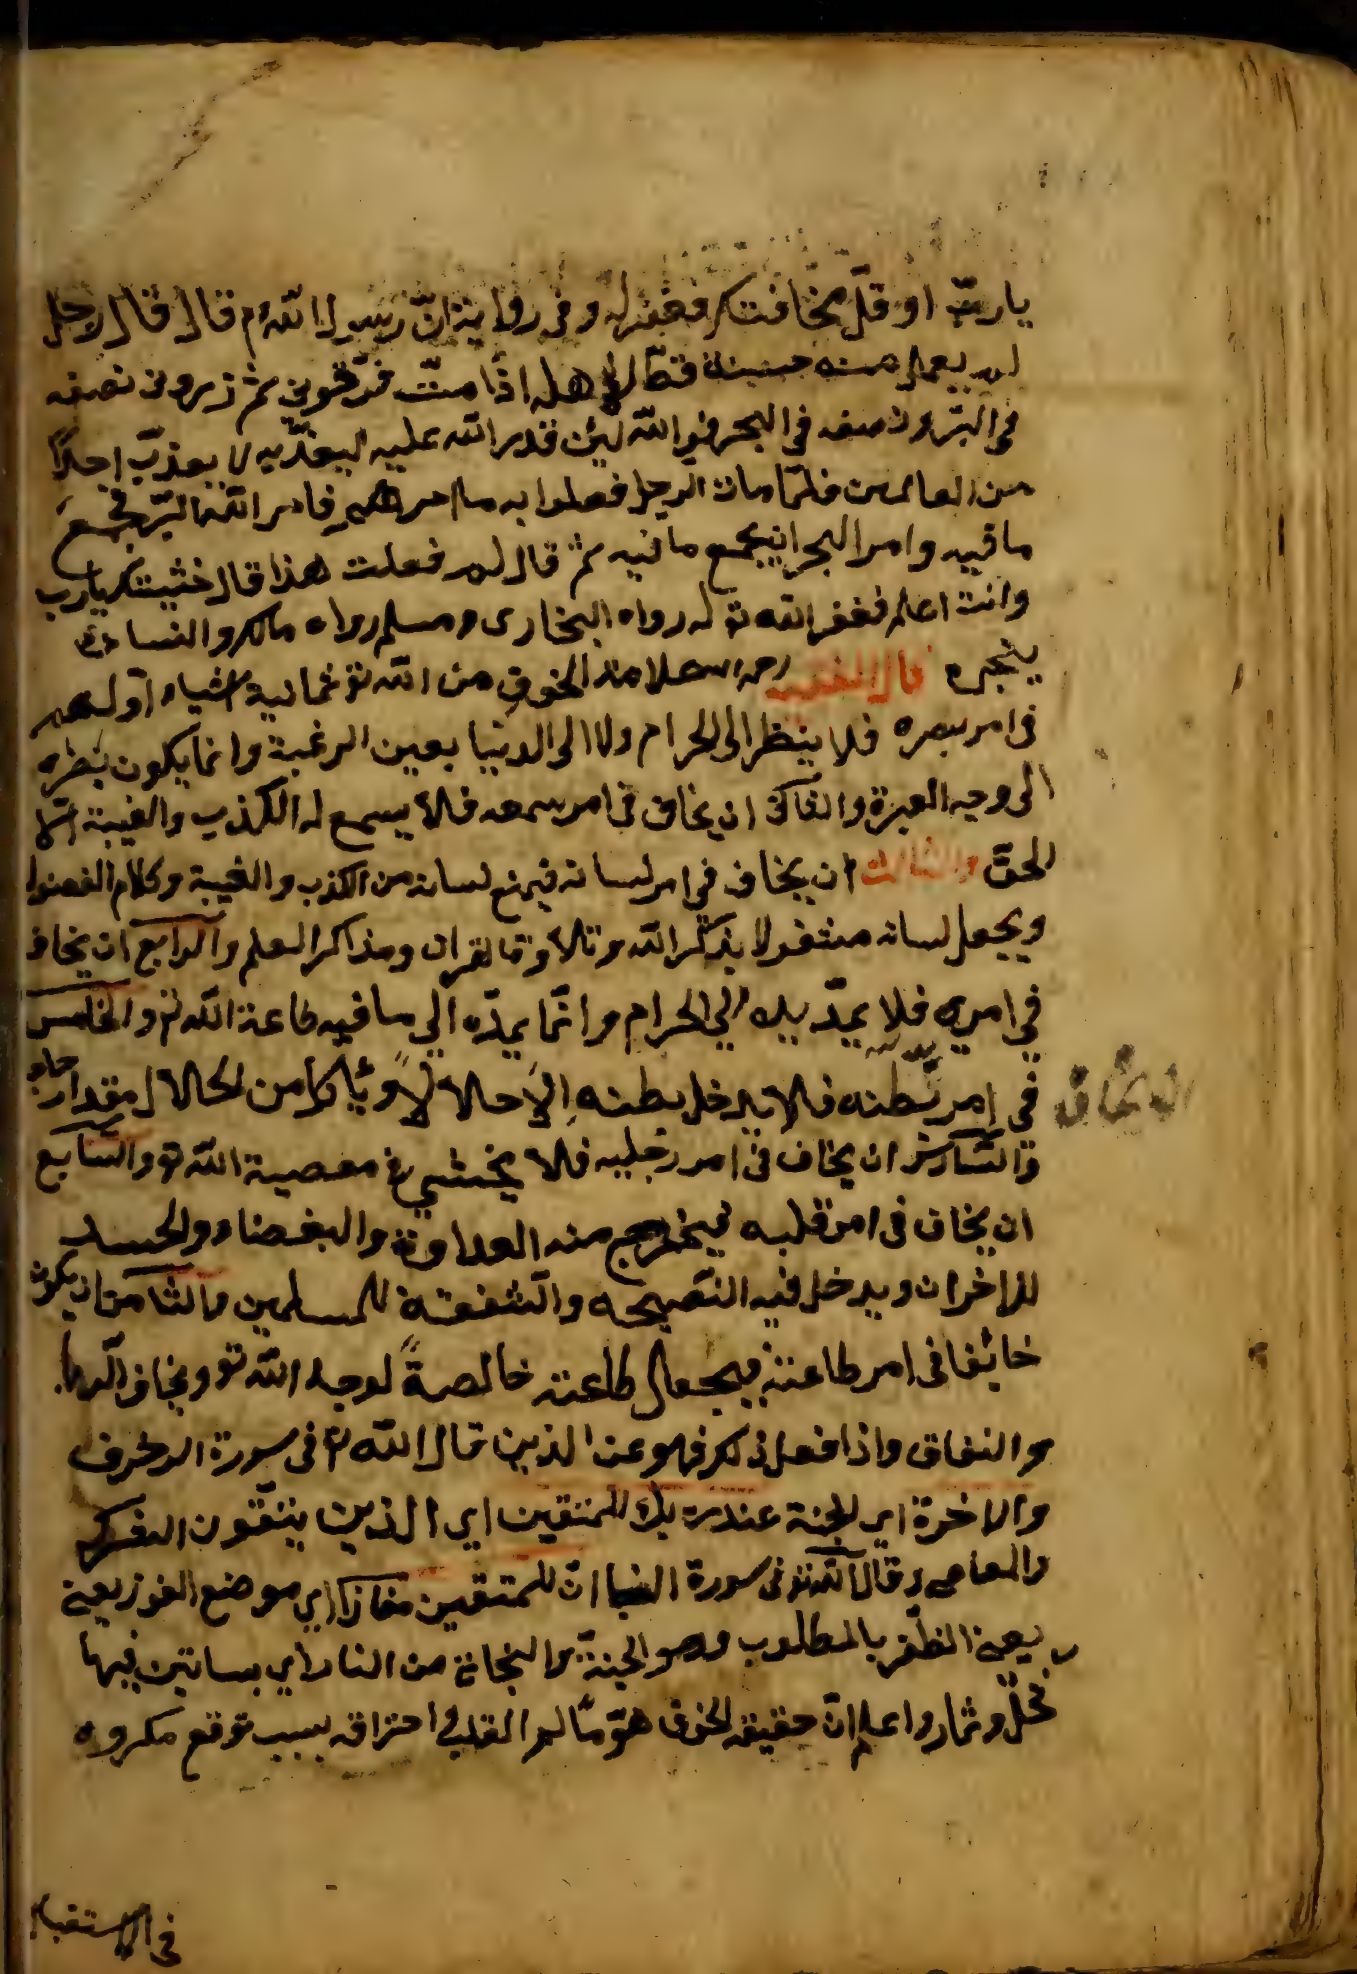 يا رب او قل مخافتك فغفر له وفى رواية ان رسول الله م قال قال رجل
لم يعمل حسنة قط لاهله اذا مت فحرقونى ثم ذرونى نصفه
فى البر ونصفه فى البحر فوالله لئن قدر الله عليه ليعذبه لا يعذب احدًا
من العالمين فلمّا مات الرجل فعلوا به ما امرهم فامر الله البرّ فجمع
ما فيه وامر البحر ان يجمع ما فيه ثم قال لم فعلت هذا قال خشيتك يا رب
وانت اعلم فغفر الله تو له رواه البخارى ومسلم رواه مالك والنسائ
بنجره قال الفقيه رحمه الله علامة الخوف من الله تو ثمانية اشياء اوّلهم
فى امر بصره فلا ينظر الى الحرام ولا الى الدنيا بعين الرغبة وانما يكون نظره
الى وجه العبرة والثانى ان يخاف فى امر سمعه فلا يسمع له الكذب والغيبة الّا
الحقّ والثالث ان يخاف فى امر لسانه فيمنع لسانه من الكذب والغيبة وكلام الفضول
ويجعل لسانه مشغولا بذكر الله وتلاوة القران ومذاكر العلم والرابع ان يخاف
فى امر يده فلا يمدّ يده الى الحرام وانّما يمدّه الى ما فيه طاعة الله تو والخامس
ان يخاف
فى امر بطنه فلا يدخل بطنه الّا حلالًا ويأكل من الحلال مقدار حاجه
والسّادس ان يخاف فى امر رجليه فلا يمشي فى معصية الله تو والسّابع
ان يخاف فى امر قلبه فيخرج منه العداوة والبغضاء والحسد
للاخوان ويدخل فيه النّصيحه والشّفقة للمسلمين والثّامن ان يكون
خائفا فى امر طاعته فيجعل طاعته خالصةً لوجه الله تو ويخاف الريا
والنفاق واذا فعل ذلك فهو من الذين قال الله تو فى سورة الزخرف
والاخرة اى الجنة عند ربك للمتقين اى الذين يتّقون الكفر
والمعاصى وقال الله تو فى سورة النبا انّ للمتّقين مفازا اى موضع الفوز يعنى
يعنى الظّفر بالمطلوب وهو الجنّة والنجاة من النار اى بساتين فيها
نخل وثمار واعلم انّ حقيقة الخوف هو تألم القلب واحتراقه بسبب توقع مكروه
فى الاستقبال